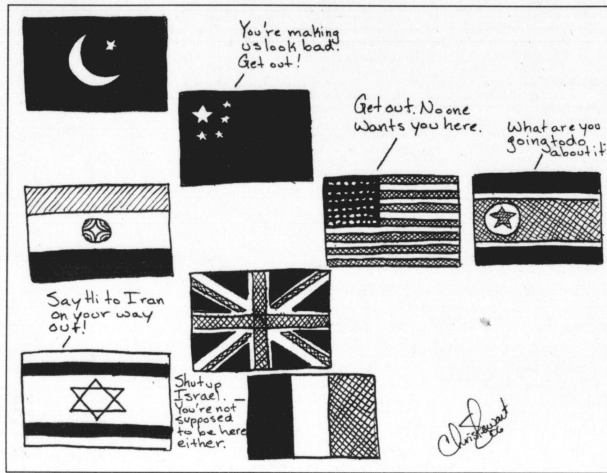 You're making
us look bad.
Get out!
Get out. No one
wants you here.
What are you
going to do
about it
Say Hi to Iran
on your way
out!
Shut up
Israel.
You're not
supposed
to be here
either.
06